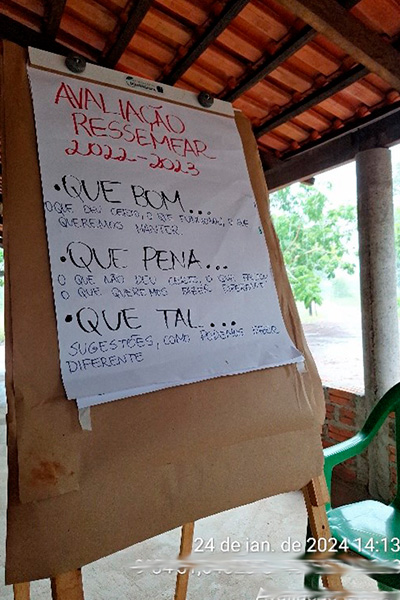 AVALIAÇÃO
RESSEMEAR
2022-2023
• QUE BOM...
O QUE DEU CERTO, O QUE FUNCIONOU, O QUE
QUEREMOS MANTER
• QUE PENA...
O QUE NÃO DEU CERTO, O QUE
O QUE QUEREMOS FAZER DIFERENTE
• QUE TAL....
SUGESTÕES, COMO PODEMOS FAZER
DIFERENTE
24 de jan. de 2024 14:13